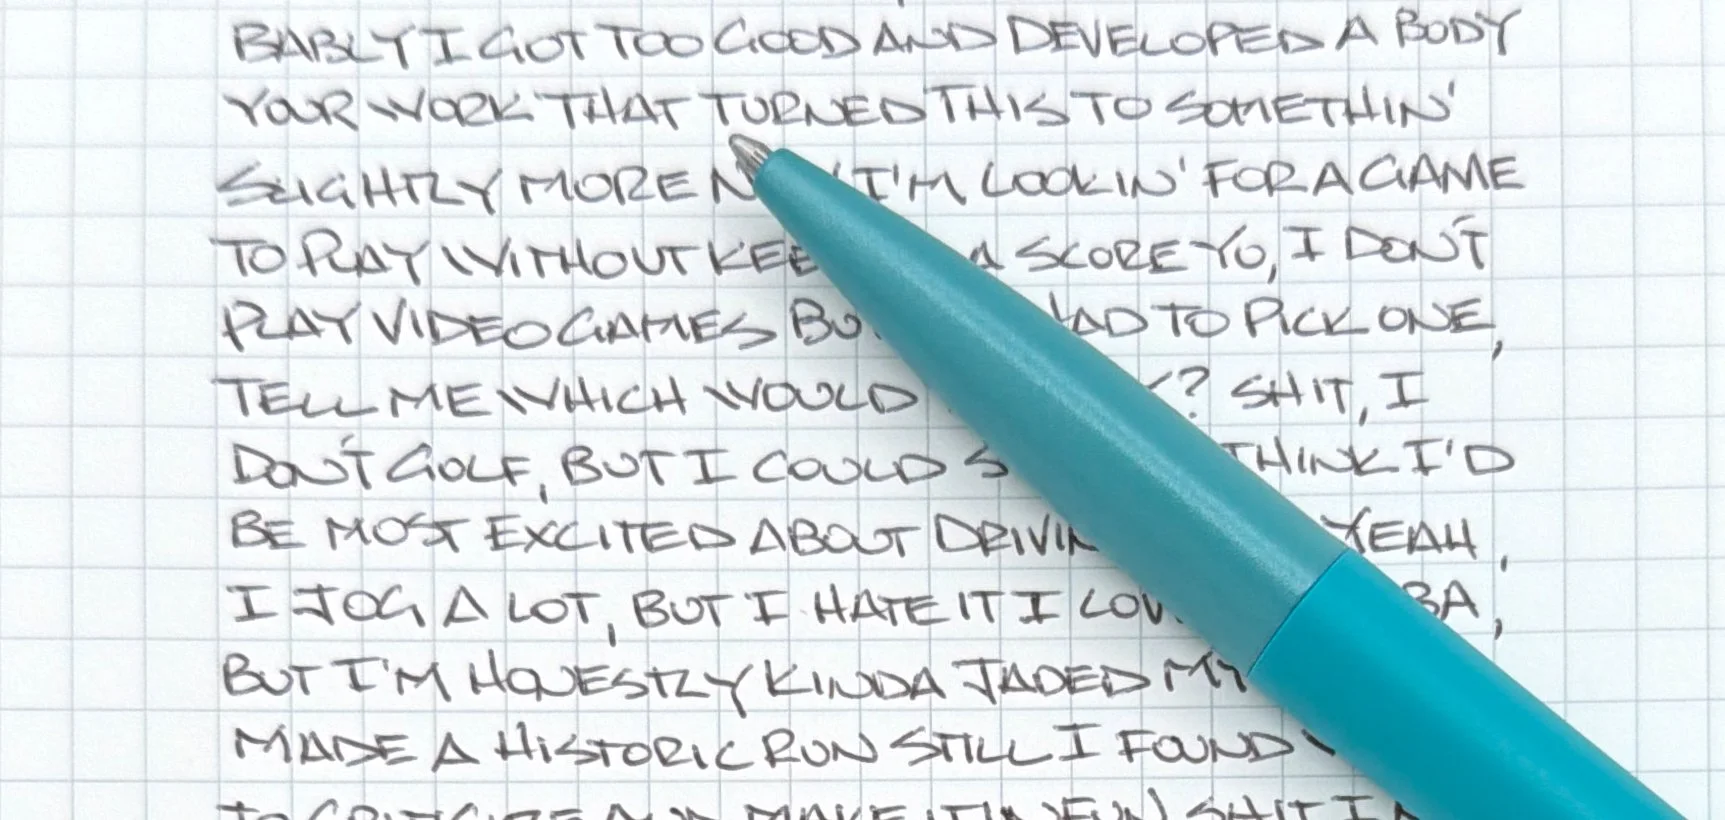 BABLY I GOT TOO GOOD AND DEVELOPED A BODY
YOUR WORK THAT TURNED THIS TO SOMETHIN'
SLIGHTLY MORE I'M LOOKIN' FOR A GAME
TO PLAY WITHOUT A SCORE YO, I DON'T
PLAY VIDEO GAMES TO PICK ONE,
TELL ME WHICH WOULD ? SHIT, I
DON'T GOLF, BUT I COULD THINK I'D
BE MOST EXCITED ABOUT YEAH,
I JOG A LOT, BUT I HATE IT I
BUT I'M HONESTLY KINDA JADED MY
MADE A HISTORIC RUN STILL I FOUND
TO CRITICIZE AND MAKE IT UNFUN SHIT I